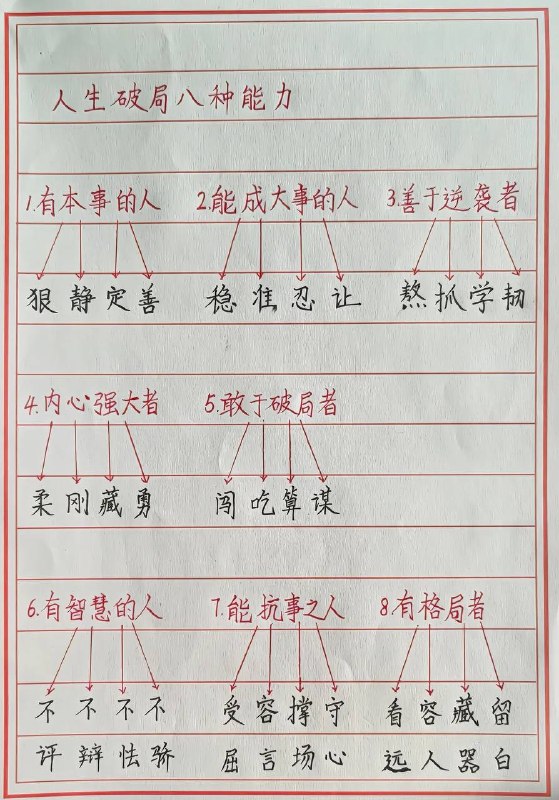 人生破局八种能力
1.有本事的人 2.能成大事的人 3.善于逆袭者
狠 静 定 善 稳 准 忍 让 熬 抓 学 韧
4.内心强大者 5.敢于破局者
柔 刚 藏 勇 闯 吃 算 谋
6.有智慧的人 7.能抗事之人 8.有格局者
不 不 不 不 受 容 撑 守 看 容 藏 留
评 辩 怯 骄 屈 言 场 心 远 人 器 白